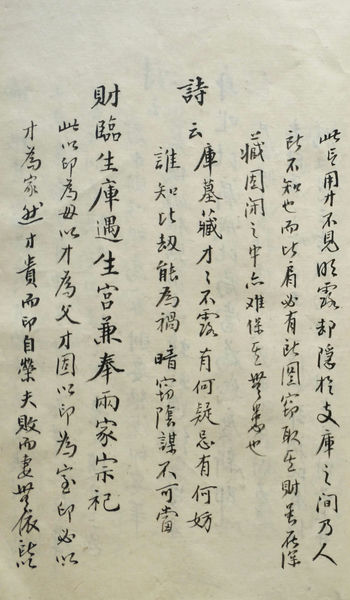 此言用才不見明露却隱於支庫之間乃人
所不知也而比肩必有所圖竊取至財畜在深
藏固閉之中亦难保其無患也
詩云庫墓藏才才不露有何疑忌有何妨
誰知比劫能為禍暗竊陰謀不可當
財臨生庫遇生宫兼奉兩家宗祀
此以印為母以才為父才固以印為室印必以
才為家然才貴而印自榮夫敗而妻無依所以